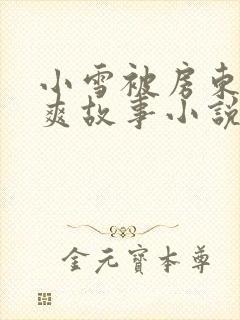 小雪被房东
爽故事小説
金元寶本尊